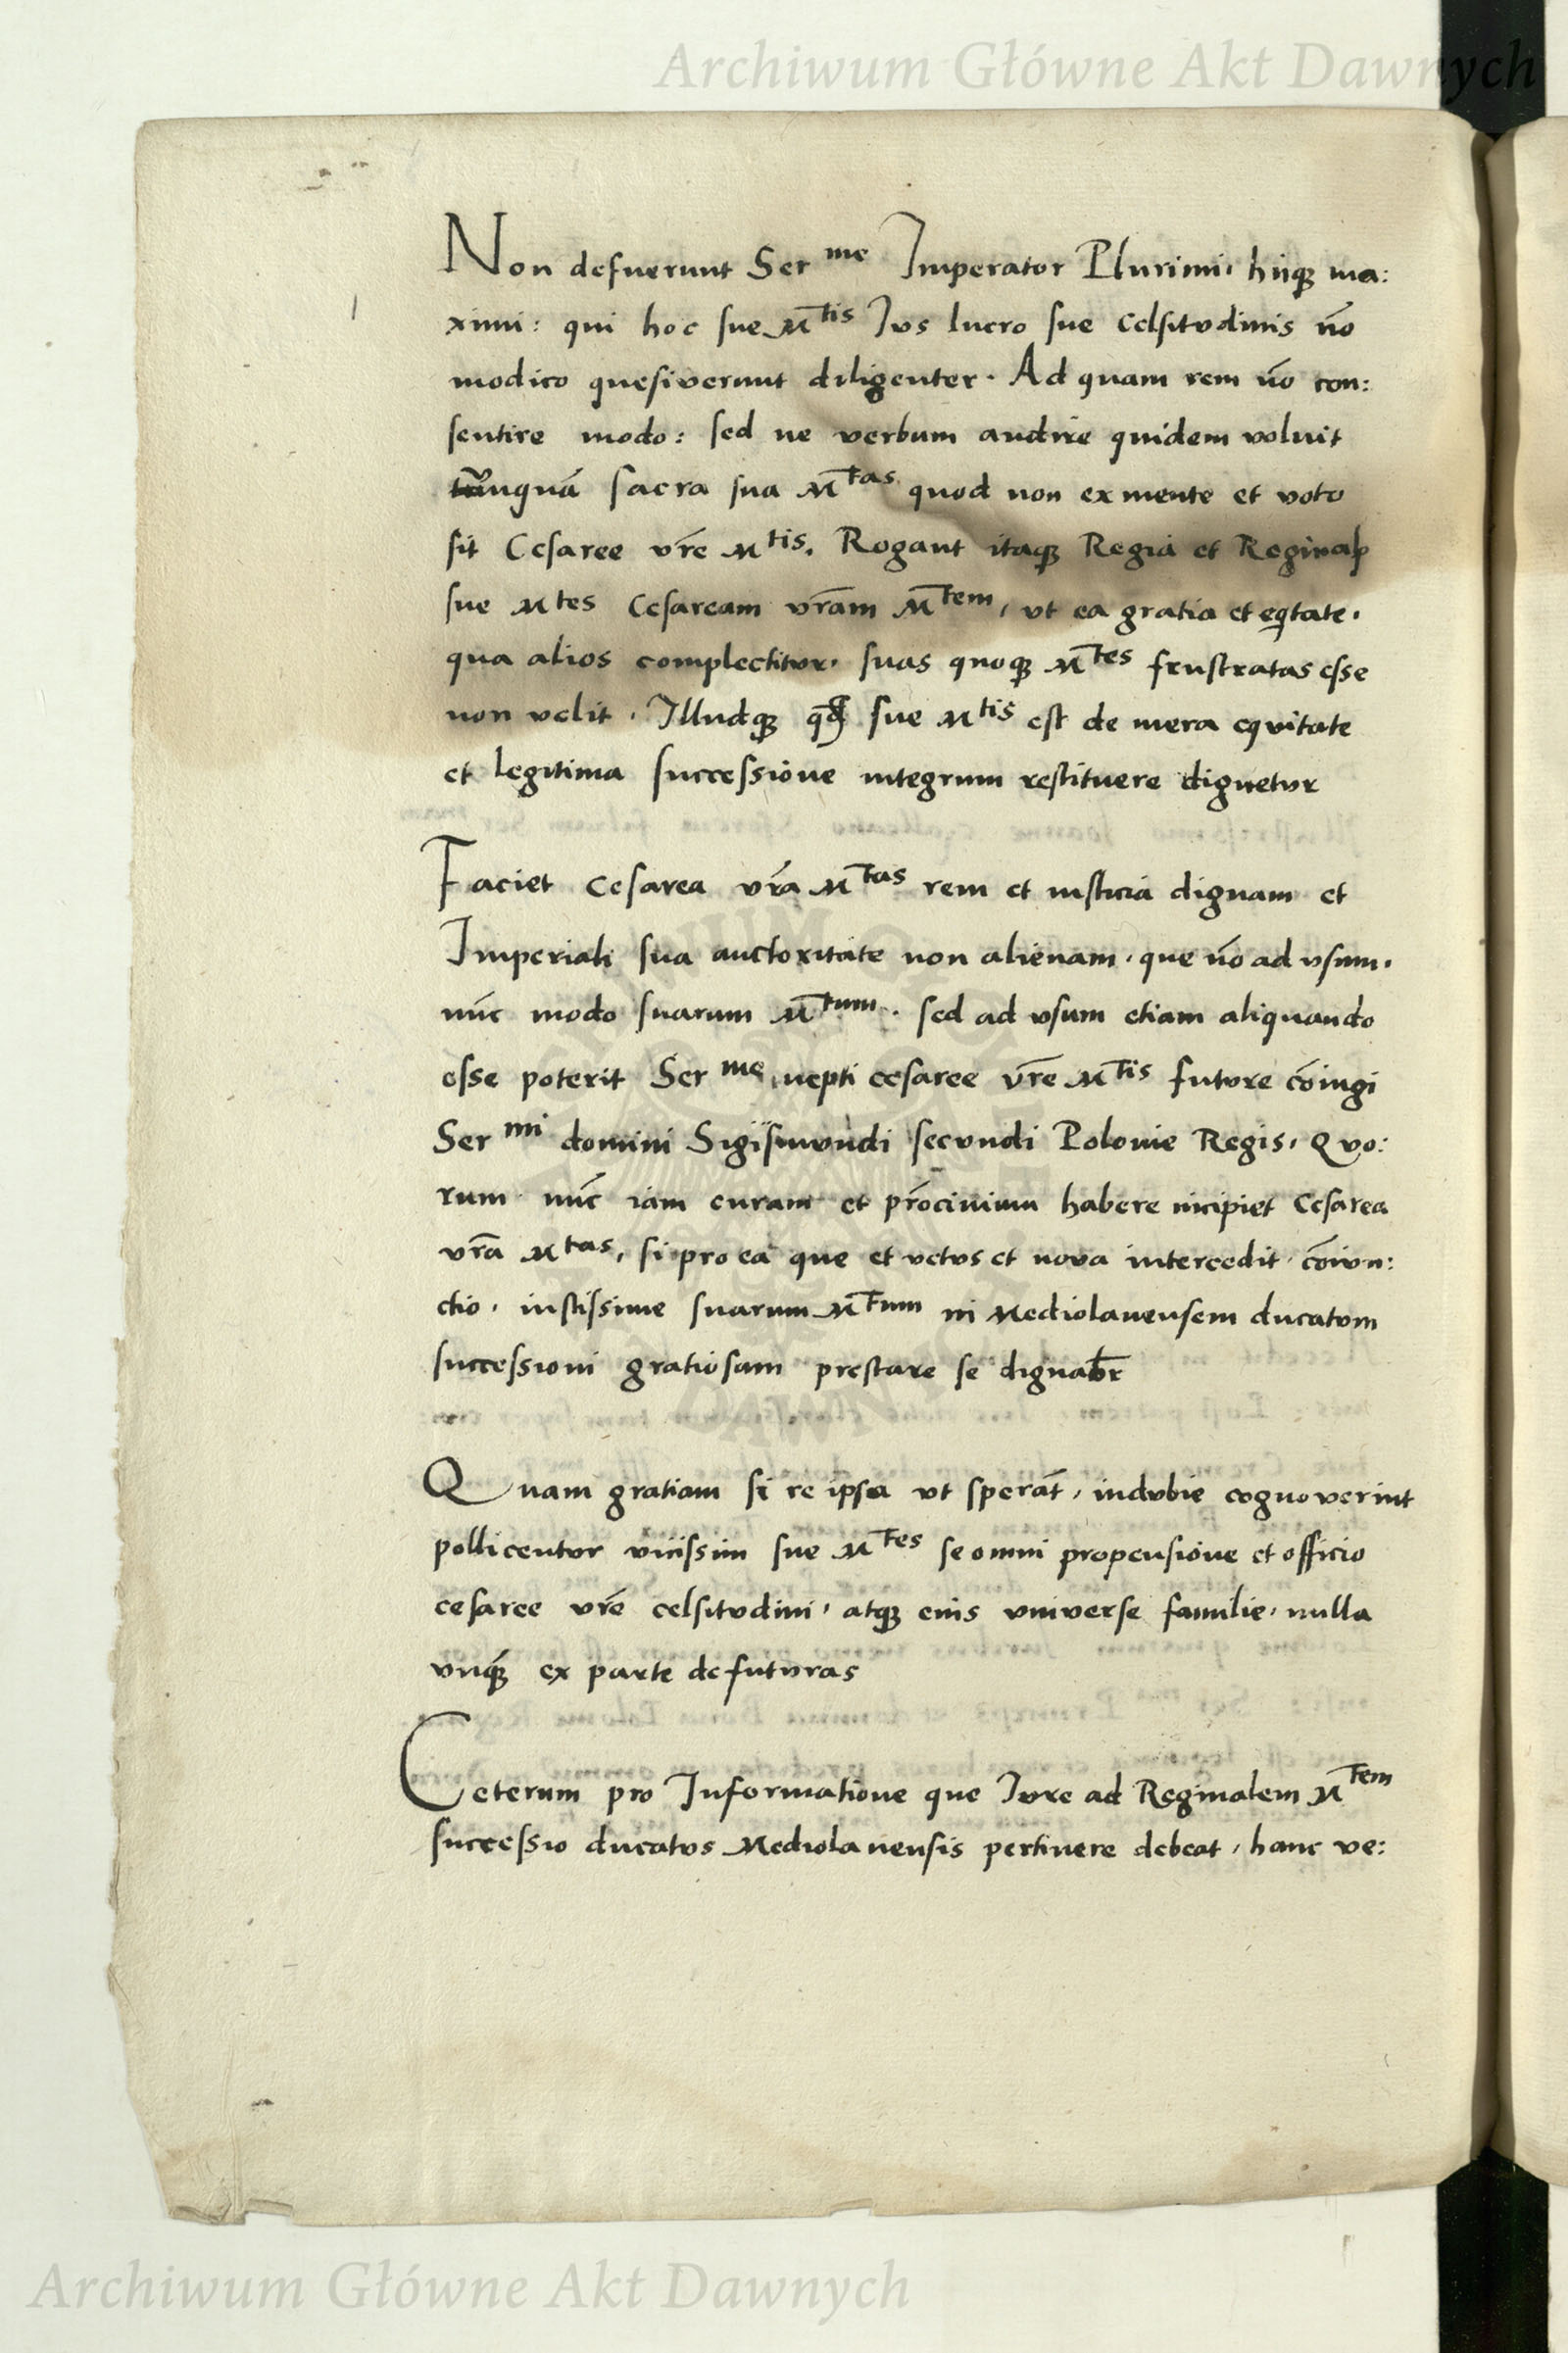 Archiwum Główne Akt Dawnych
Non defuerunt Ser me Imperator Plurimi, hiiq; ma:
ximi: qui hoc sue Mtis Ius lucro sue Celsitudinis nō
modico quesiverunt diligenter. Ad quam rem nō con:
sentire modo: sed ne verbum audire quidem voluit
unquā sacra sua Mtas, quod non ex mente et voto
sit Cesaree vrē Mtis. Rogant itaq; Regia et Reginal
sue Mtes Cesaream vrām Mtem, ut ea gratia et eqtate,
qua alios complectitur, suas quoq; Mtes frustratas esse
non velit. Illudq; qd sue Mtis est de mera equitate
et legitima successione integrum restituere dignetur
Faciet Cesarea vrā Mtas rem et iusticia dignam et
Imperiali sua auctoritate non alienam, que nō ad usum,
nūc modo suarum Mtum. sed ad usum etiam aliquando
esse poterit Ser me nepti cesaree vrē Mtis future cōiugi
Ser mi domini Sigismundi secundi Polonie Regis, Quo:
rum nūc iam curam et prōcinium habere incipiet Cesarea
vrā Mtas, si pro ea que et vetus et nova intercedit, cōiun:
ctio, iustissime suarum Mtum in Mediolanensem ducatum
successioni gratiosam prestare se dignabr
Quam gratiam si re ipsa ut sperāt, indubie cognoverint
pollicentur vicissim sue Mtes se omni propensione et officio
cesaree vrē celsitudini, atq; eius universe familie, nulla
unq; ex parte defuturas
Ceterum pro Informatione que Iure ad Reginalem Mtem
successio ducatus Mediolanensis pertinere debeat, hanc ve:
Archiwum Główne Akt Dawnych